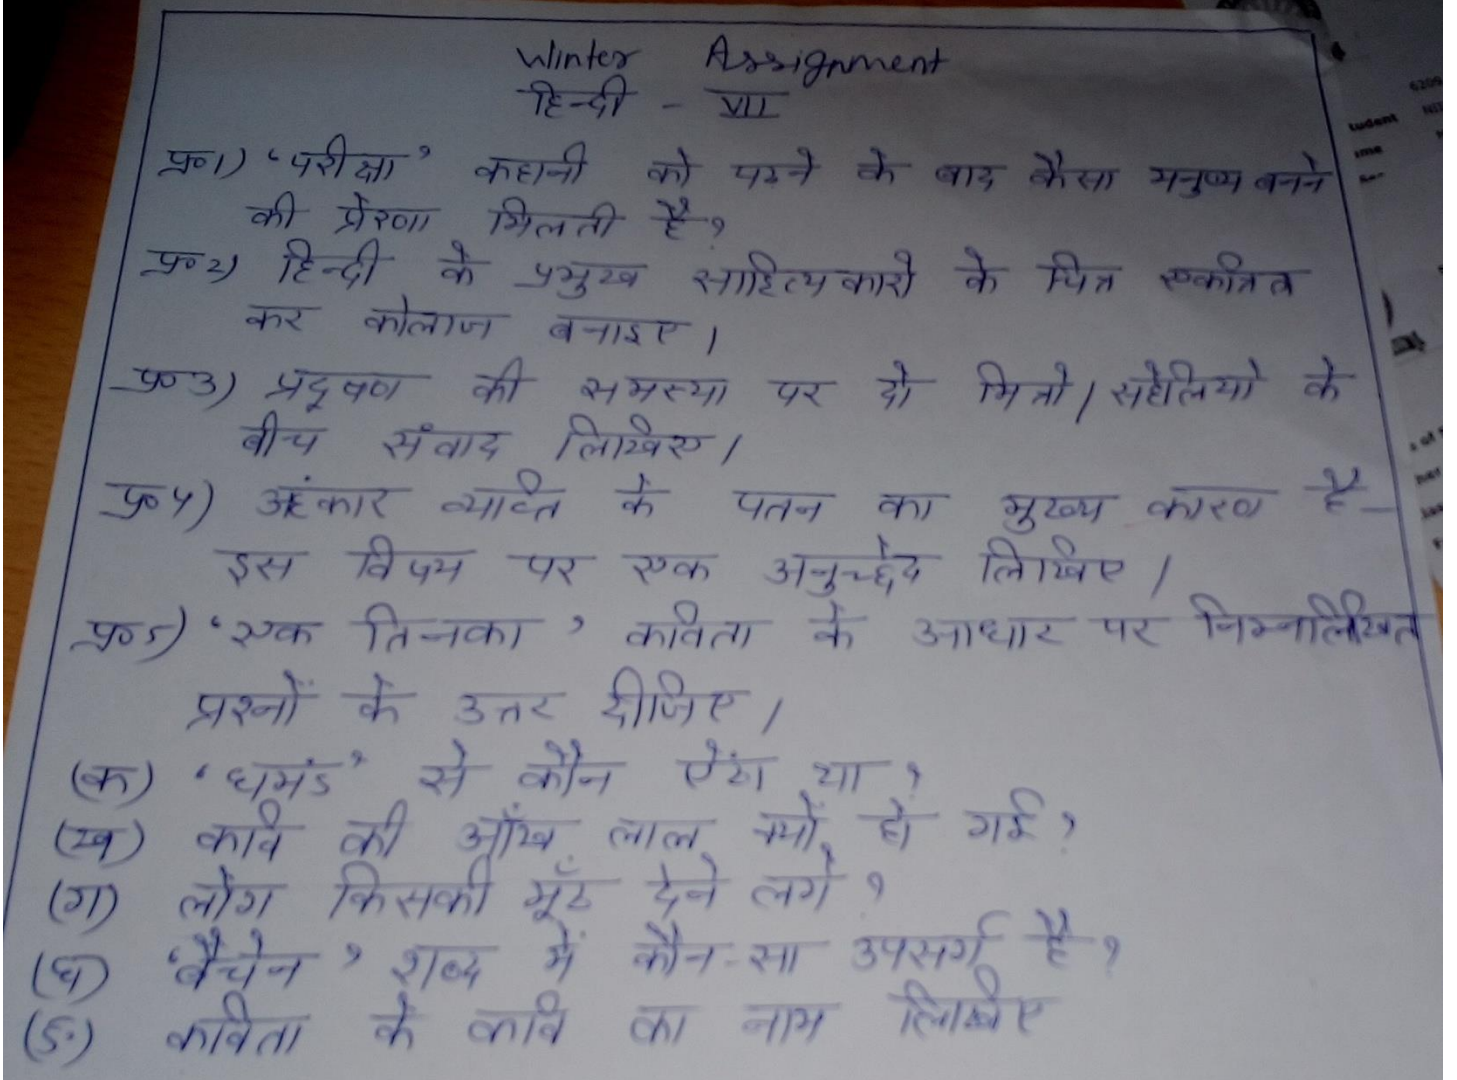 Winter Assignment
हिन्दी - VII
प्र०1) 'परीक्षा' कहानी को पढने के बाद कैसा मनुष्य बनने
की प्रेरणा मिलती है?
प्र०2) हिन्दी के प्रमुख साहित्यकारो के चित्र एकत्रित
कर कोलाज बनाइए।
प्र०3) प्रदूषण की समस्या पर दो मित्रो/सहेलियो के
बीच संवाद लिखिए।
प्र०4) अहंकार व्यक्ति के पतन का मुख्य कारण है-
इस विषय पर एक अनुच्छेद लिखिए।
प्र०5) 'एक तिनका' कविता के आधार पर निम्नलिखित
प्रश्नों के उत्तर दीजिए।
(क) 'घमंड' से कौन ऐंठा था?
(ख) कवि की आँख लाल क्यों हो गई?
(ग) लोग किसकी मूँठ देने लगे?
(घ) 'बैचेन' शब्द में कौन-सा उपसर्ग है?
(ङ) कविता के कवि का नाम लिखिए
6209
tudent
ame